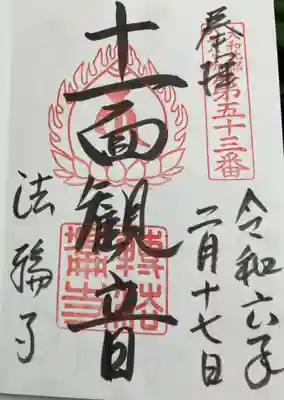 奉拝
第五十三番
令和六年
二月十七日
十一面観音
法輪寺